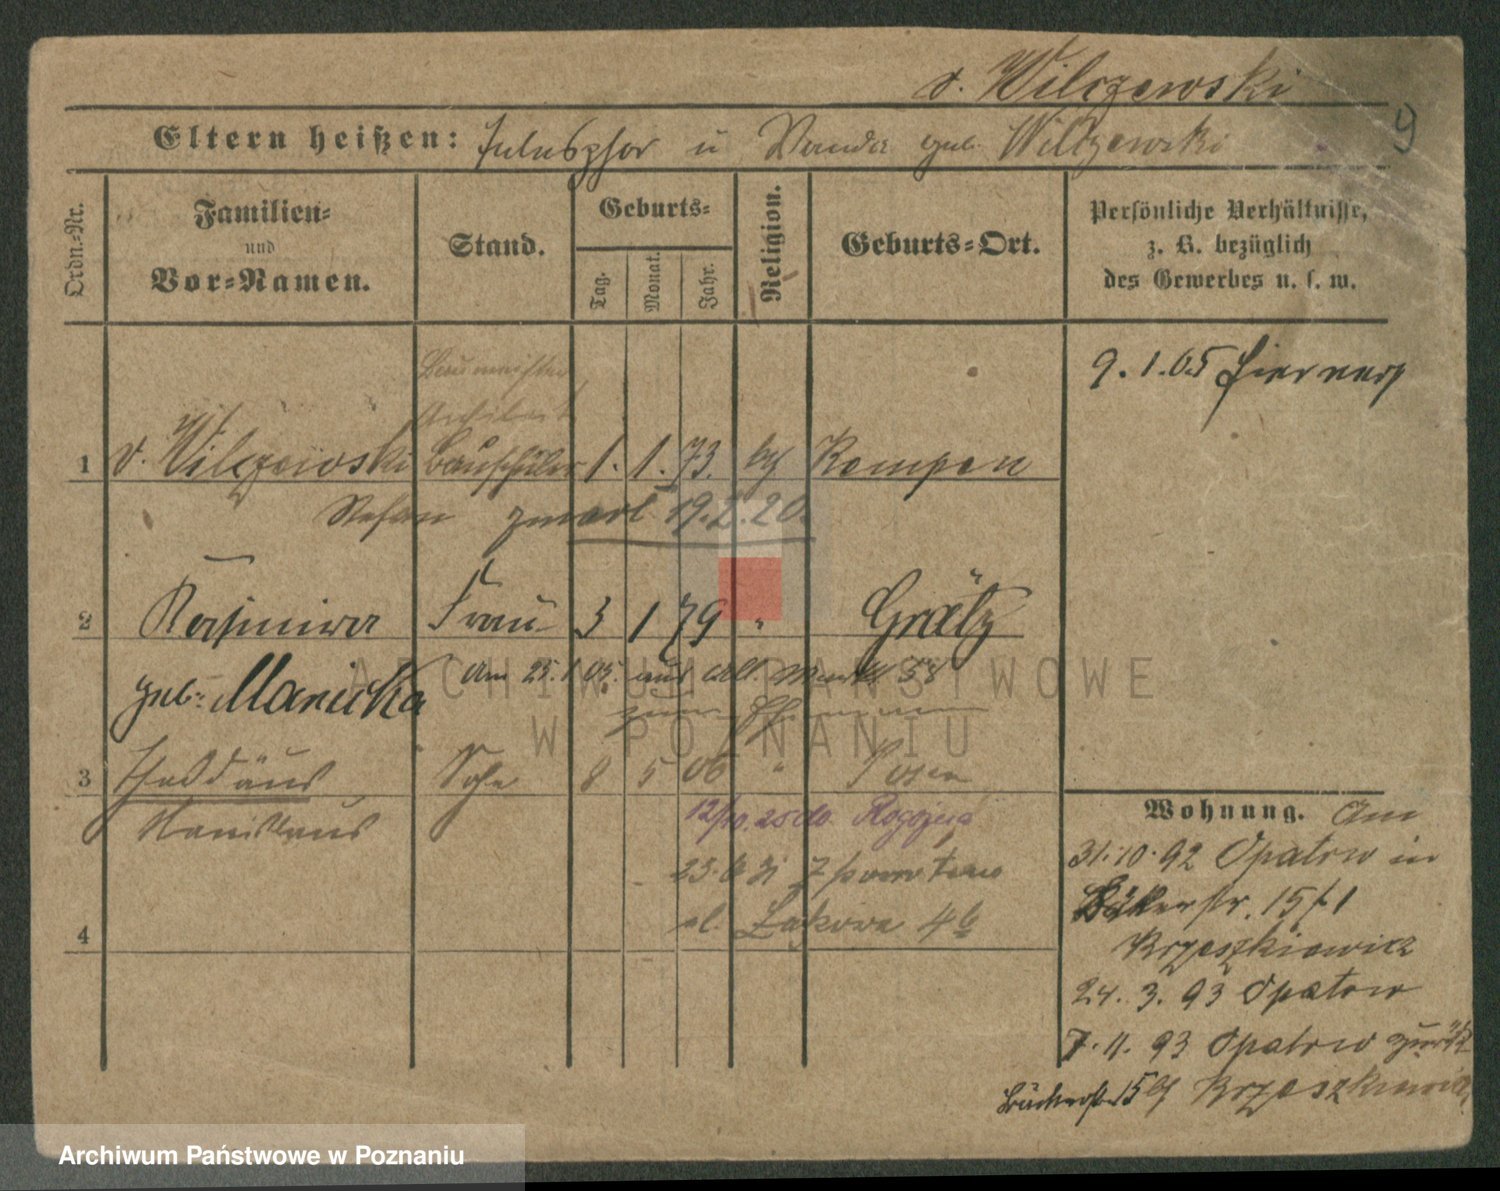 v. Wilczewski
9
Eltern heißen: u Wanda geb. Wilczewski
Ordn.-Nr.
Familien-
und
Vor-Namen.
Stand.
Geburts-
Tag.
Monat.
Jahr.
Religion.
Geburts-Ort.
Persönliche Verhältnisse,
z. B. bezüglich
des Gewerbes u. s. w.
9. 1. 05
Baumeister
Architect
1 v. Wilczewski Bauschüler 1. 1. 73. Kempen
Stefan zmarł 19.2.20.
2 Kasimira Frau 3 1 79 " Grätz
geb: Manicka
Am 25.1.05. aus Alt. Markt 58
3 Thaddäus Sohn 8 5 06 " Posen
Stanislaus
12/10.25 do
23.6 31 z powrotem
ul. Łąkowa 4b
4
Wohnung. Am
31.10.92 Opatow in
Bäckerstr. 15/1
Krzeszkiewicz
24. 3. 93 Opatow
7. 11. 93 Opatow zurück
Bäckerstr. 15 Krzeszkiewicz
ARCHIWUM PAŃSTWOWE
W POZNANIU
Archiwum Państwowe w Poznaniu